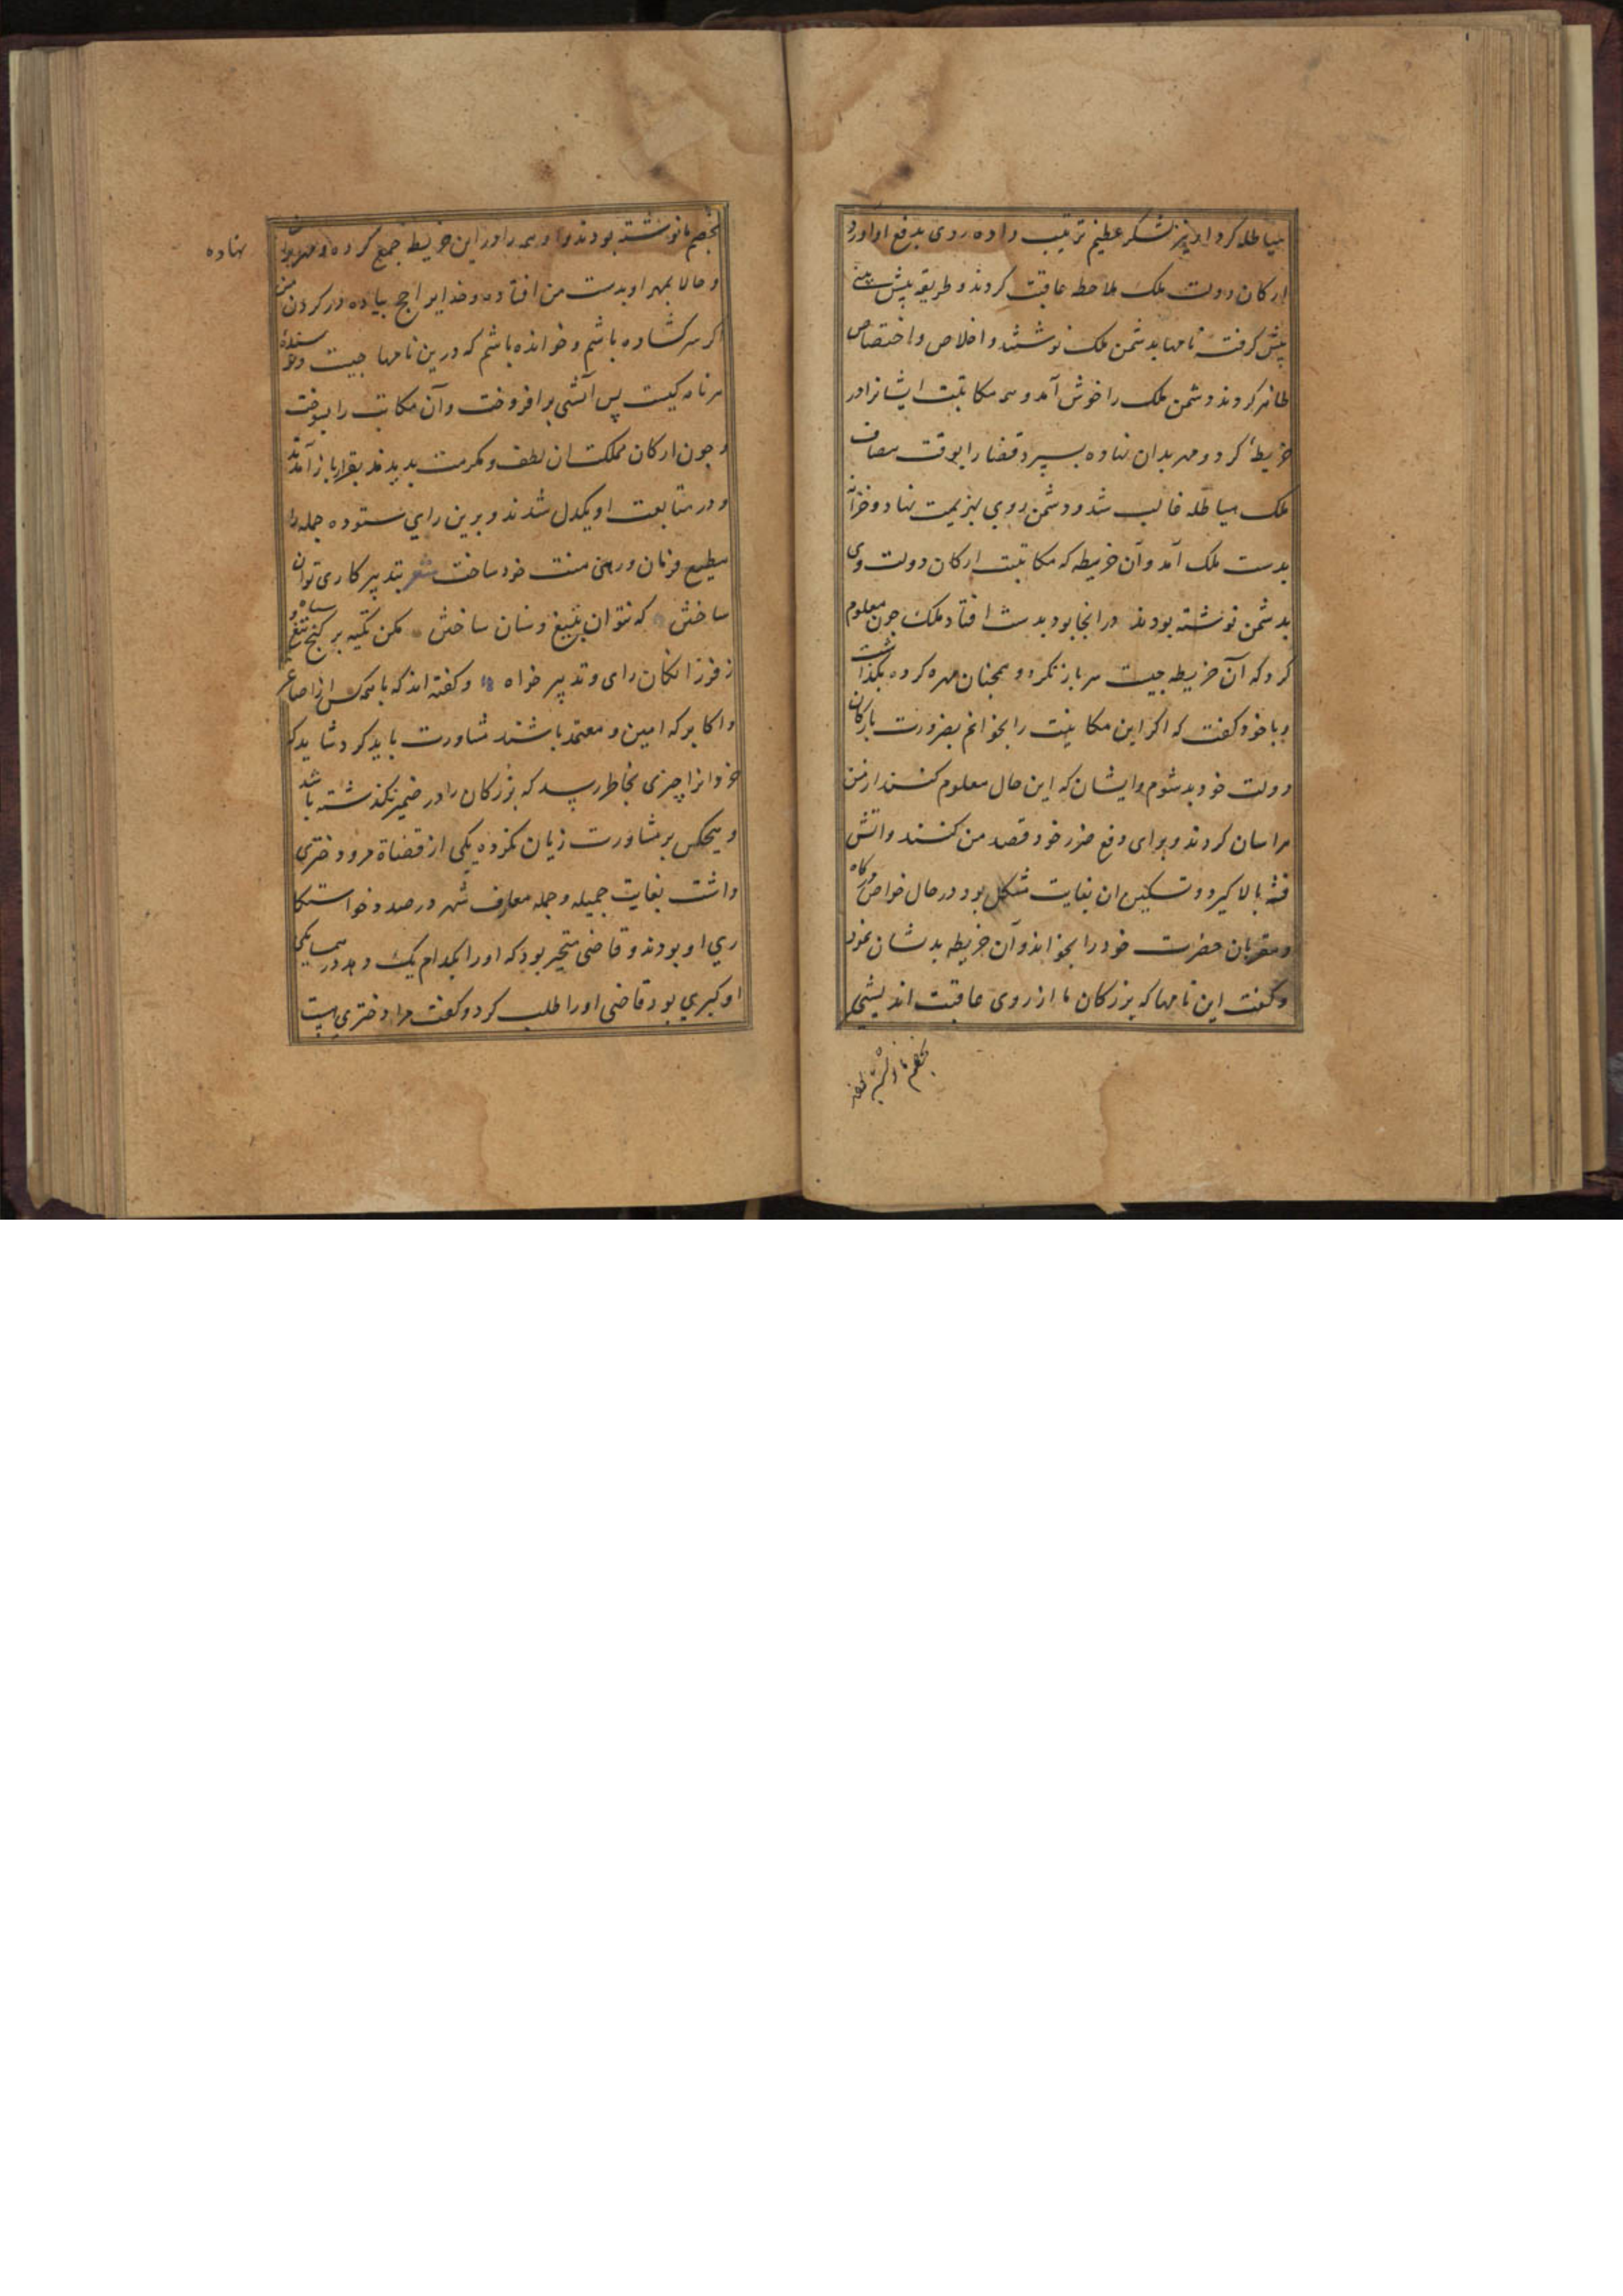 هیاطله کرد او نیز لشکر عظیم ترتیب داده روی بدفع او اورد
ارکان دولت ملک ملاحظه عاقبت کردند و طریقه پیش بینی
پیش گرفته نامها بدشمن ملک نوشتند و اخلاص و اختصاص
ظاهر کردند دشمن ملک را خوش آمد و همه مکاتبت ایشانرا در
خریطهٔ کرد و مهر بدان نهاده بسپرد قضا را بوقت مصاف
ملک هیاطله غالب شد و دشمن روی بهزیمت نهاد و خزانه
بدست ملک آمد و آن خریطه که مکاتبت ارکان دولت وی
بدشمن نوشته بودند در انجا بود بدست افتاد ملک چون معلوم
کرد که آن خریطه جیست سر باز نکرد و همچنان مهر کرده بگذاشت
و با خود کفت که اکر این مکاتبت را بخوانم بضرورت بارکان
دولت خود بد شوم و ایشان که این حال معلوم کنند از من
هراسان کردند و برای دفع ضرر خود قصد من کنند و اتش
فتنه بالا کیرد و تسکین ان بغایت مشکل بود در حال خواص درکاه
و مقربان حضرت خود را بخواند و آن خریطه بدیشان نمود
و کفت این نامها که بزرکان ما از روی عاقبت اندیشی
بخصم ما نوشته بودند
بخصم ما نوشته بودند و او همه را در این خریطه جمع کرده و مهر بران نهاده
و حالا بمهر او بدست من افتاده و خدایرا حج پیاده در کردن من
اکر سر کشاده باشم و خوانده باشم که درین نامها جیست و نویسنده
هر نامه کیست پس آتشی برافروخت و آن مکاتبت را بسوخت
و جون ارکان مملکت ان لطف و مکرمت بدیدند بقرار باز آمدند
و در متابعت او یکدل شدند و برین رای ستوده جمله را
مطیع فرمان و رهین منت خود ساخت شعر بتدبیر کاری توان
ساختن که نتوان بتیغ و سنان ساختن مکن تکیه بر کنج و تیغ و سپاه
ز فرزانکان رای و تدبیر خواه و کفته اند که با همه کس از اصاغر
و اکابر که امین و معتمد باشند مشاورت باید کرد شاید که
خردانرا چیزی بخاطر رسد که بزرکان را در ضمیر نکذشته باشد
و هیجکس بر مشاورت زیان نکرده یکی از قضاة مرو دختری
داشت بغایت جمیله و جمله معارف شهر در صدد خواستکا
ری او بودند و قاضی متحیر بود که او را بکدام یک دهد در همسایکی
او کبری بود قاضی او را طلب کرد و کفت مرا دختری هست